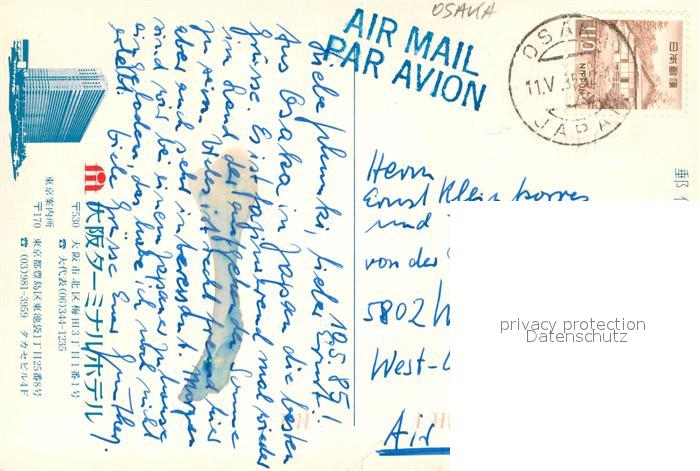 OSAKA
AIR MAIL
PAR AVION
OSAKA
11.V.85
JAPAN
日本郵便
NIPPON
郵
10.5.85
Liebe Schumki, lieber Ernst!
Aus Osaka in Japan die besten
Grüsse. Es ist faszinierend mal wieder
im Land der aufgehenden Sonne
zu sein. Vieles ist recht fremd hier
aber auch sehr interessant. Morgen
sind wir bei einem Japaner zuhause
eingeladen, das habe ich noch nicht
erlebt. Viele Grüsse Euer Günther.
大阪ターミナルホテル
〒530 大阪市北区梅田3丁目1番1号
☎ 大代表(06)344-1235
東京案内所
〒170 東京都豊島区東池袋1丁目25番8号
☎ (03)981-3959 タカセビル4F
Herrn
Ernst Kleinhorres
und
von der
5802 W
West-
Air
privacy protection
Datenschutz